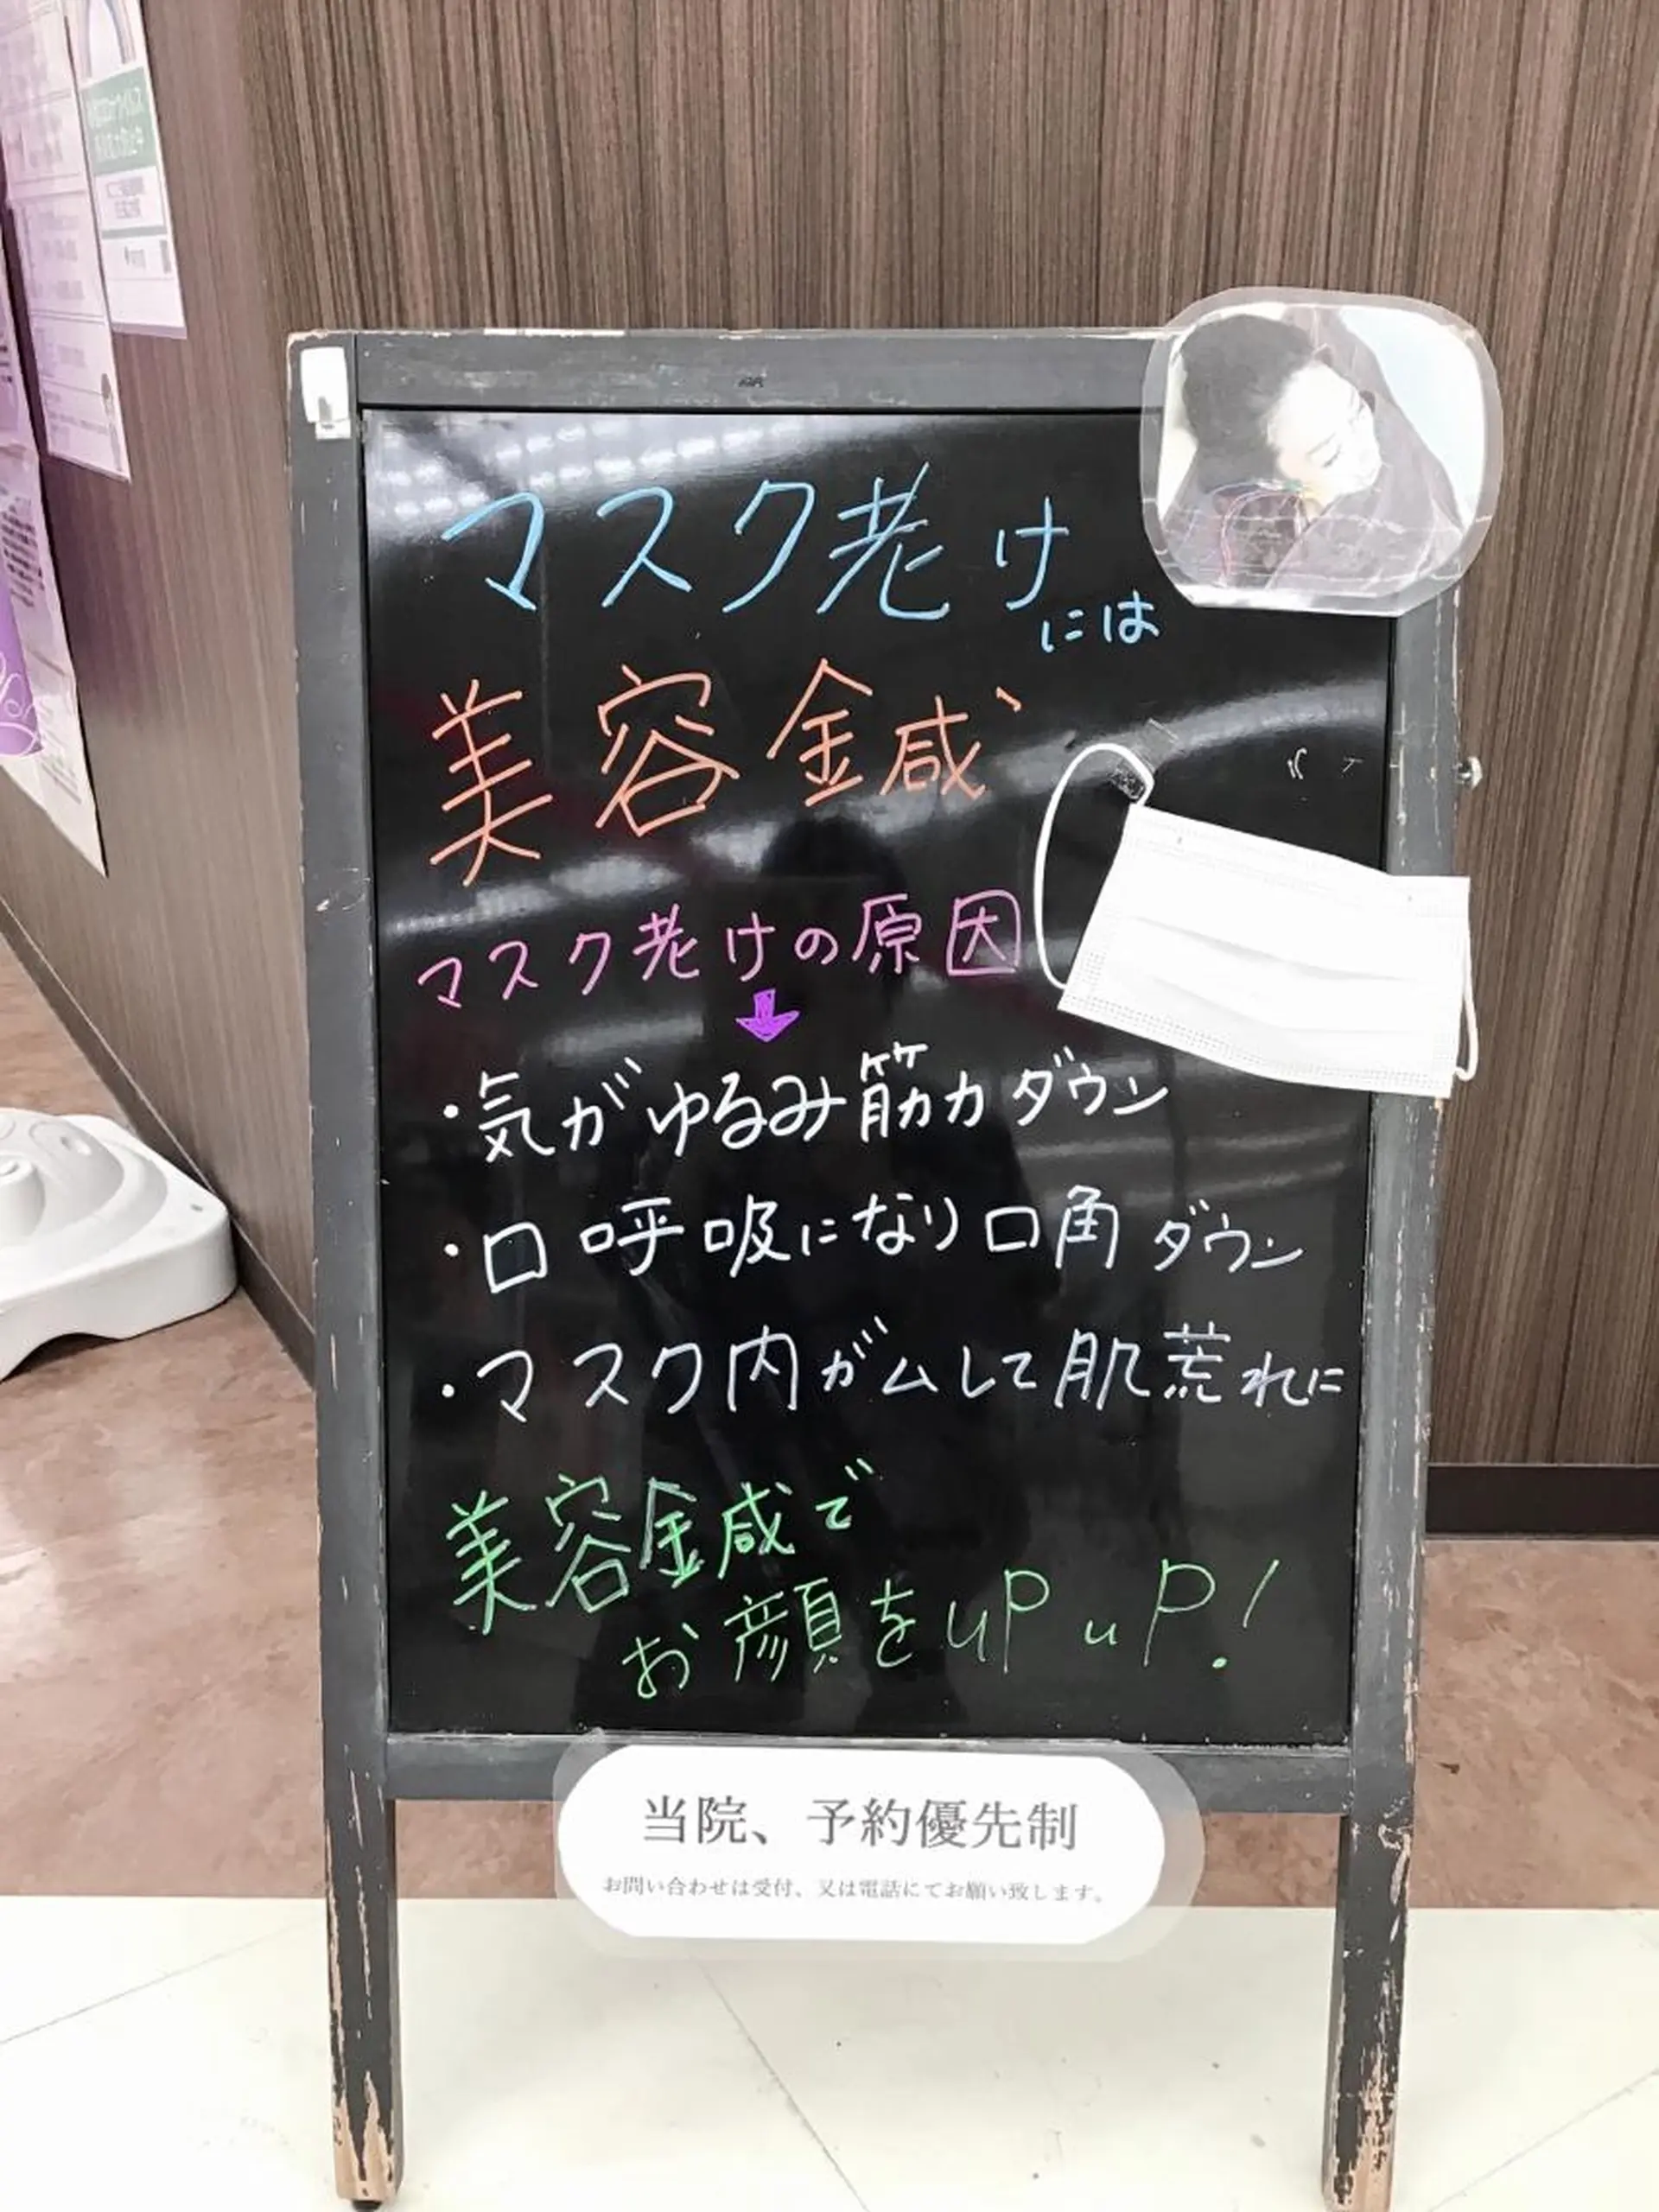 マスク老け
には
美容鍼
マスク老けの原因
・気がゆるみ筋力ダウン
・口呼吸になり口角ダウン
・マスク内がムレて肌荒れに
美容鍼で
お顔をuP uP!
当院、予約優先制
お問い合わせは受付、又は電話にてお願い致します。